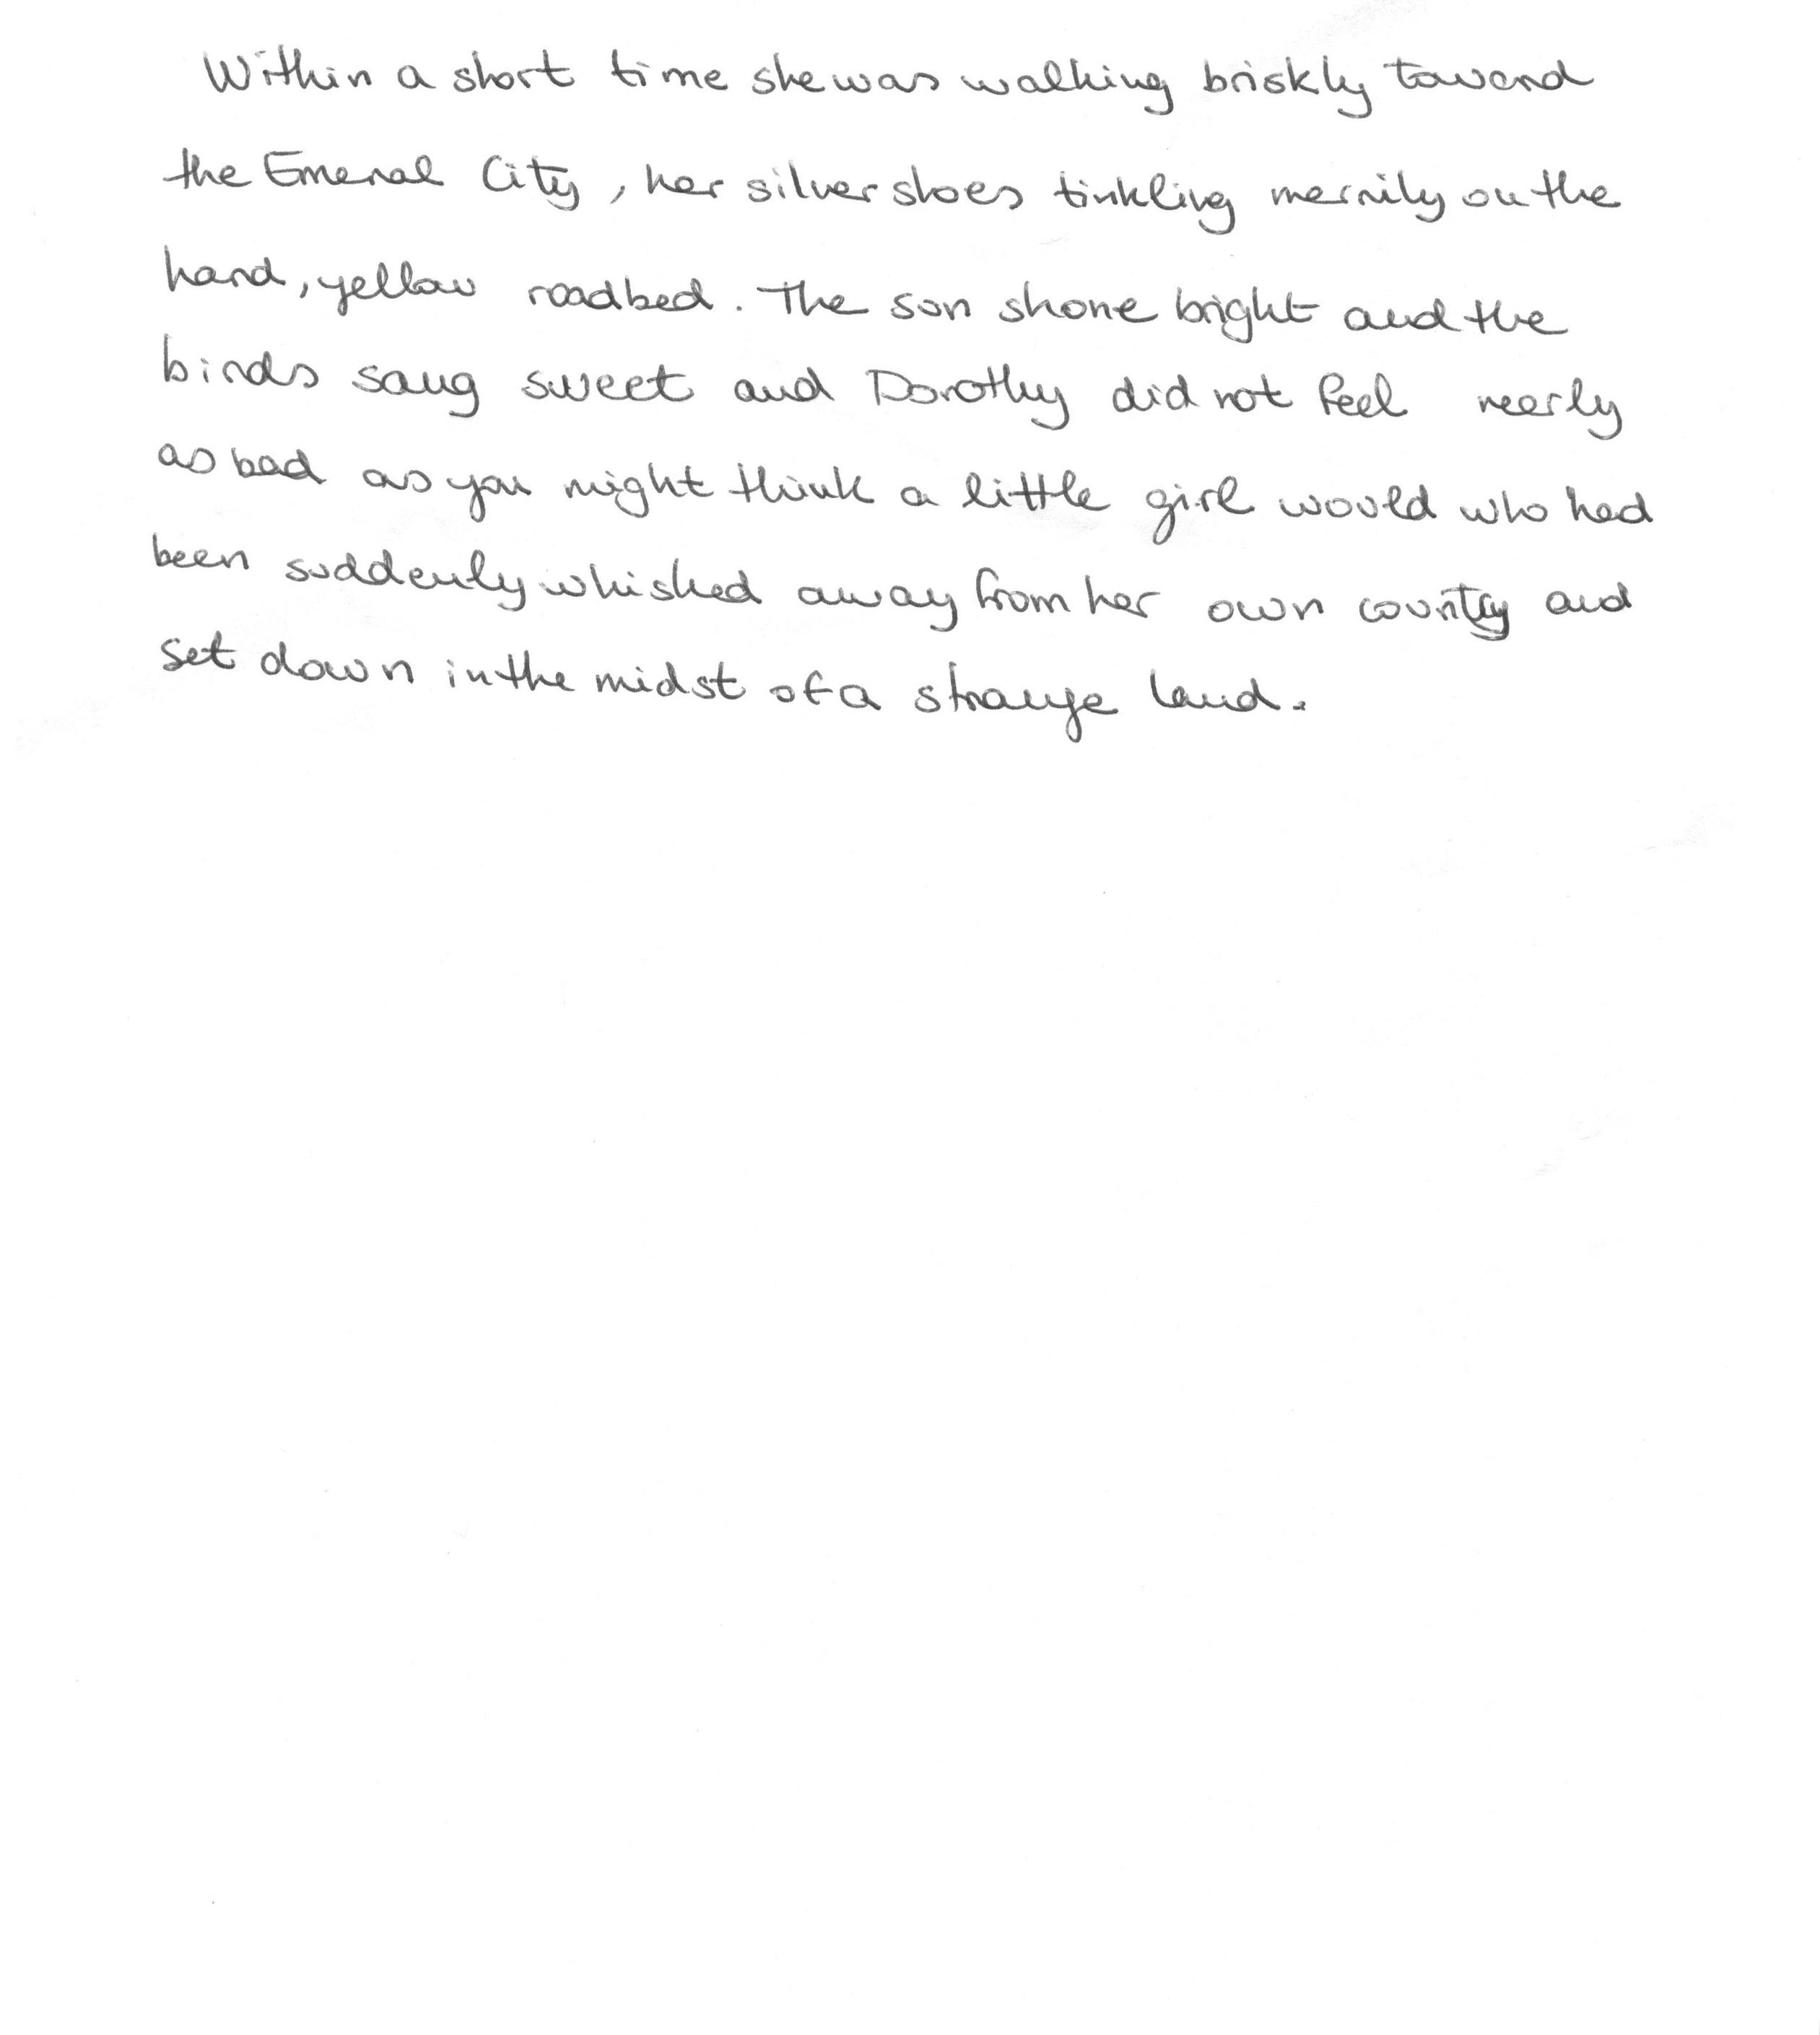 Within a short time she was walking briskly toward
the Emeral City, her silver shoes tinkling merrily on the
hard, yellow roadbed. The sun shone bright and the
birds sang sweet and Dorothy did not feel nearly
as bad as you might think a little girl would who had
been suddenly whisked away from her own country and
set down in the midst of a strange land.